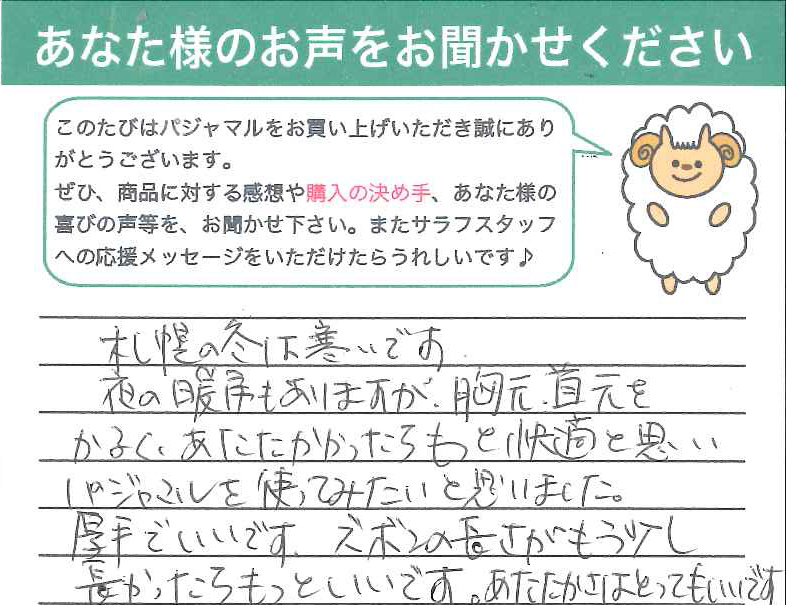 あなた様のお声をお聞かせください
このたびはパジャマルをお買い上げいただき誠にあり
がとうございます。
ぜひ、商品に対する感想や購入の決め手、あなた様の
喜びの声等を、お聞かせ下さい。またサラフスタッフ
への応援メッセージをいただけたらうれしいです♪
札幌の冬は寒いです
夜の暖房もありますが、胸元、首元を
かるく、あたたかかったらもっと快適と思い
パジャマルを使ってみたいと思いました。
厚手でいいです、ズボンの長さがもう少し
長かったらもっといいです。あたたかさはとってもいいです